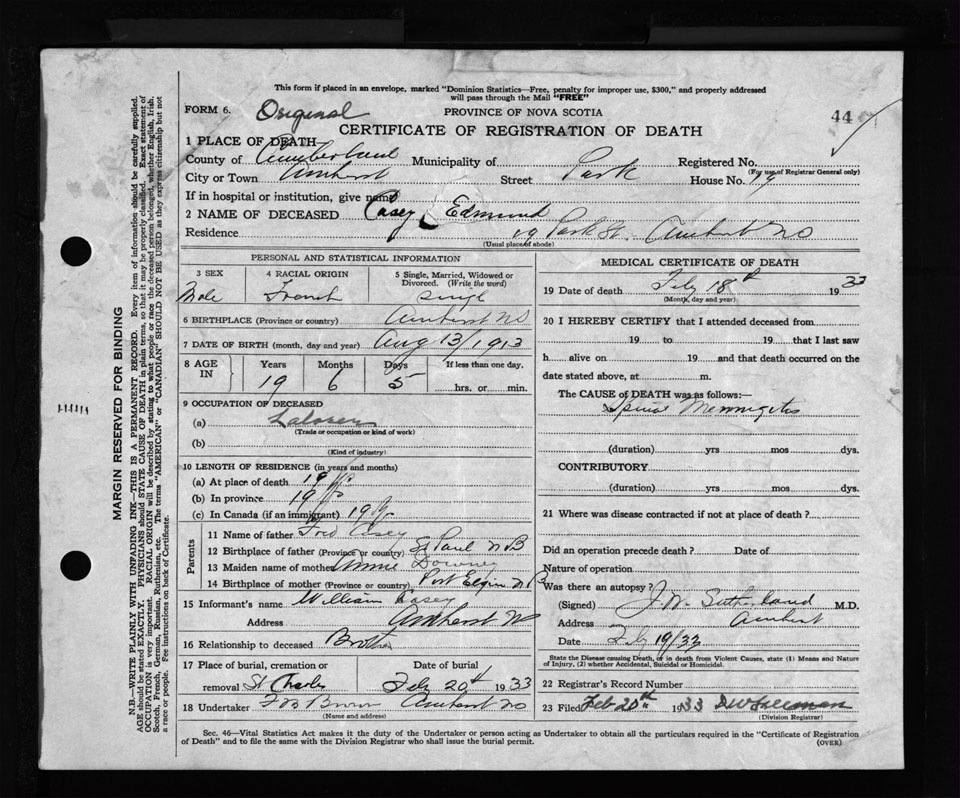 This form if placed in an envelope, marked "Dominion Statistics—Free, penalty for improper use, $300," and properly addressed
will pass through the Mail "FREE"
FORM 6. Original PROVINCE OF NOVA SCOTIA 44
CERTIFICATE OF REGISTRATION OF DEATH
1 PLACE OF DEATH—
County of Cumberland Municipality of Registered No.
(For use of Registrar General only)
City or Town Amherst Street Park House No. 19
If in hospital or institution, give name
2 NAME OF DECEASED Casey Edmund
Residence 19 Park St. Amherst NS
(Usual place of abode)
PERSONAL AND STATISTICAL INFORMATION
3 SEX 4 RACIAL ORIGIN 5 Single, Married, Widowed or Divorced. (Write the word)
Male French single
6 BIRTHPLACE (Province or country) Amherst NS
7 DATE OF BIRTH (month, day and year) Aug 13/1913
8 AGE IN Years Months Days If less than one day.
19 6 5 hrs. or min.
9 OCCUPATION OF DECEASED
(a) Laborer
(Trade or occupation or kind of work)
(b)
(Kind of industry)
10 LENGTH OF RESIDENCE (in years and months)
(a) At place of death 19 yrs
(b) In province 19 yrs
(c) In Canada (if an immigrant) 19 yrs
Parents
11 Name of father Fred Casey
12 Birthplace of father (Province or country) St Paul NB
13 Maiden name of mother Minnie Downey
14 Birthplace of mother (Province or country) Port Elgin NB
15 Informant's name William Casey
Address Amherst NS
16 Relationship to deceased Brother
17 Place of burial, cremation or Date of burial
removal St Charles Feb 20th 1933
18 Undertaker Brown Amherst NS
(Name and address)
MEDICAL CERTIFICATE OF DEATH
19 Date of death Feby 18th 1933
(Month, day and year)
20 I HEREBY CERTIFY that I attended deceased from
19 to 19 that I last saw
h alive on 19 and that death occurred on the
date stated above, at m.
The CAUSE OF DEATH was as follows:—
Spinal Menningitis
(duration) yrs mos dys.
CONTRIBUTORY
(duration) yrs mos dys.
21 Where was disease contracted if not at place of death?
Did an operation precede death? Date of
Nature of operation
Was there an autopsy?
(Signed) J.W. Sutherland M.D.
Address Amherst
Date Feby 19/33
State the Disease causing Death, or in death from Violent Causes, state (1) Means and Nature
of Injury, (2) whether Accidental, Suicidal or Homicidal.
22 Registrar's Record Number
23 Filed Feb 20th 1933
(Division Registrar)
Sec. 46—Vital Statistics Act makes it the duty of the Undertaker or person acting as Undertaker to obtain all the particulars required in the "Certificate of Registration
of Death" and to file the same with the Division Registrar who shall issue the burial permit. (OVER)
MARGIN RESERVED FOR BINDING
N.B.—WRITE PLAINLY WITH UNFADING INK—THIS IS A PERMANENT RECORD. Every item of information should be carefully supplied.
AGE should be stated EXACTLY. PHYSICIANS should STATE CAUSE OF DEATH in plain terms, so that it may be properly classified. Exact statement of
OCCUPATION is very important. RACIAL ORIGIN will be described by stating to what people or race the deceased person belonged, whether English, Irish,
Scotch, French, German, Russian, Ruthenian, etc. The terms "AMERICAN" or "CANADIAN" SHOULD NOT BE USED as they express citizenship but not
a race or people. Fee instructions on back of Certificate.